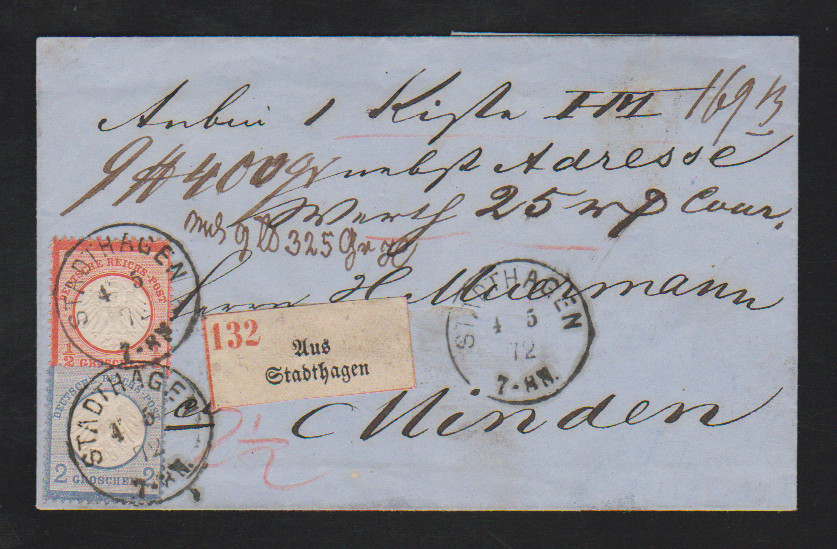 Anbei 1 Kiste I M 169 B
9 # 400 gr nebst Adresse
Werth 25 Cour.
9 325 Gr
Herrn H.
132
Aus
Stadthagen
Minden
2 1/2
STADTHAGEN
4 5
72
7-8N.
STADTHAGEN
4 5
72
7-8N.
STADTHAGEN
4 5
72
7-8N.
DEUTSCHE REICHS-POST
1/2 GROSCHEN
DEUTSCHE REICHS-POST
2 GROSCHEN 2